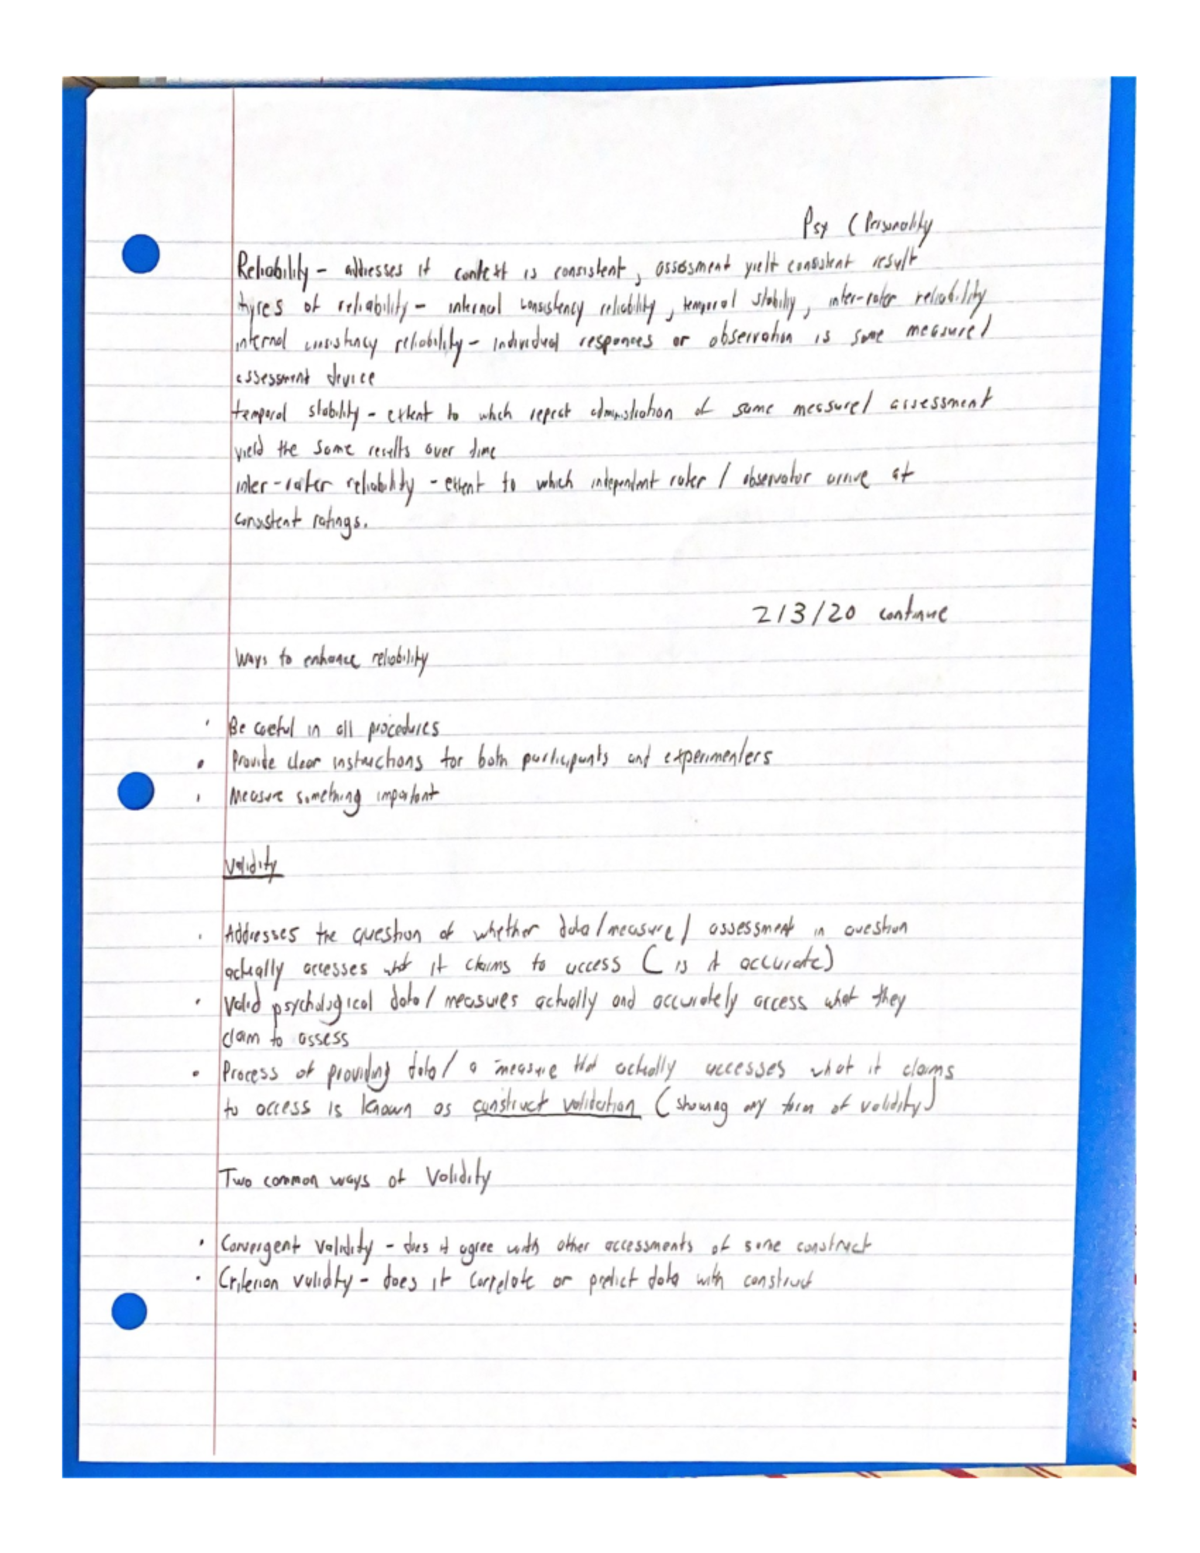 Psy ( Personality
Reliability – addresses if context is consistent, assessment yielt consistent result
types of reliability – internal consistency reliability, temporal stability, inter-rater reliability
internal consistency reliability – individual responses or observation is same measure/
assessment device
temporal stability – extent to which repeat administration of same measure/ assessment
yield the same results over time
inter-rater reliability – extent to which independent rater / observator arrive at
consistent ratings.
2/3/20 continue
Ways to enhance reliability
• Be careful in all procedures
• Provide clear instructions for both participants and experimenters
• Measure something important
Validity
• Addresses the question of whether data/measure/ assessment in question
actually accesses what it claims to access ( is it accurate)
• Valid psychological data/ measures actually and accurately access what they
claim to assess
• Process of providing data/ a measure that actually accesses what it claims
to access is known as construct validation ( showing any form of validity)
Two common ways of Validity
• Convergent validity – does it agree with other accessments of same construct
• Criterion validity – does it correlate or predict data with construct